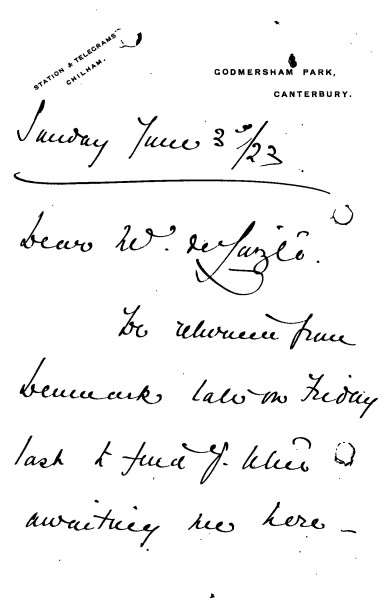 STATION & TELEGRAMS
CHILHAM.
GODMERSHAM PARK,
CANTERBURY.
Sunday June 3rd/23
Dear Mr. de László.
We returned from
Denmark late on Friday
last to find yr. letter
awaiting me here –